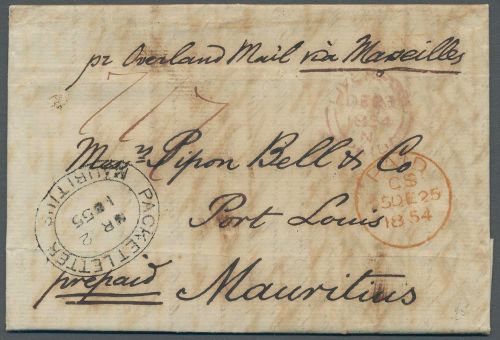 pr Overland Mail via Marseilles
Mess.rs Pipon Bell & Co
Port Louis
Mauritius
prepaid
PACKET LETTER
MAURITIUS
MR 2
1855
PAID
CS
1854
DE
1854
N